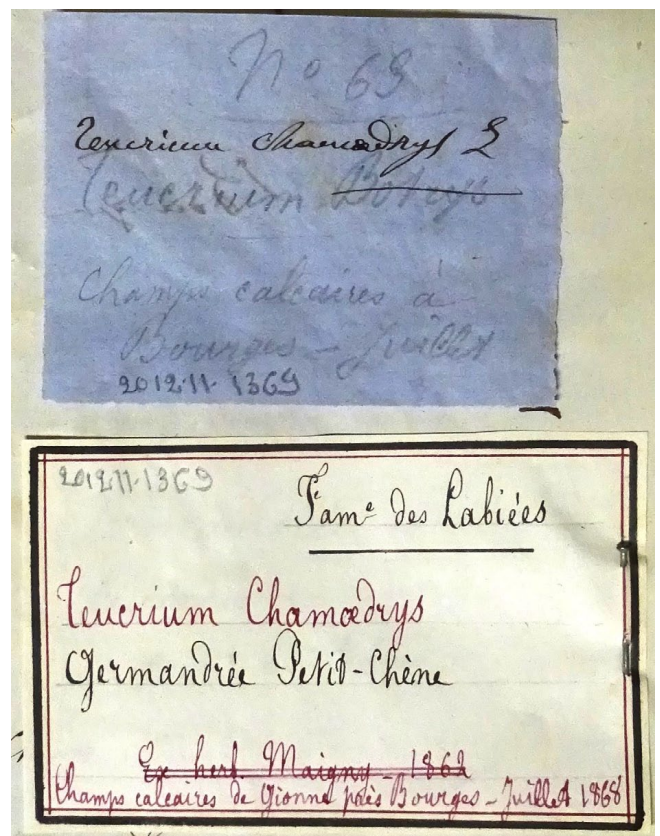 No 69
Teucrium chamaedrys L
Teucrium Botrys
Champs calcaires à
Bourges - Juillet
2012.11.1369
2012.11.1369
Fam.e des Labiées
Teucrium Chamædrys
Germandrée Petit-Chêne
Ex herb. Maigny - 1862
Champs calcaires de Gionne près Bourges - Juillet 1868